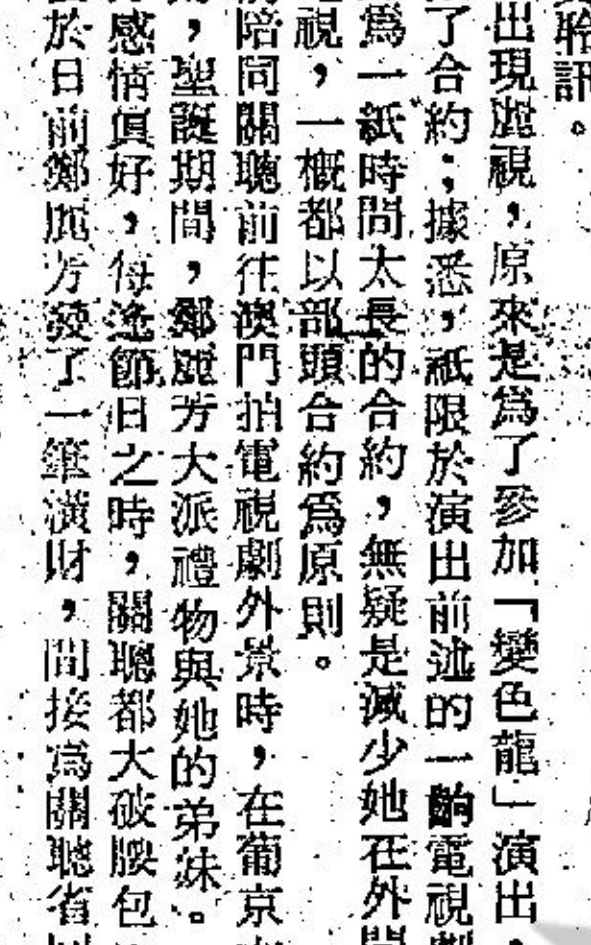 聆訊。
出現麗視，原來是爲了參加「變色龍」演出，
了合約；據悉，祗限於演出前述的一齣電視劇
爲一紙時間太長的合約，無疑是減少她在外間
視，一概都以部頭合約爲原則。
陪同關聰前往澳門拍電視劇外景時，在葡京
，聖誕期間，鄭麗芳大派禮物與她的弟妹。
感情眞好，每逢節日之時，關聰都大破腰包
於日前鄭麗芳發了一筆橫財，間接爲關聰省